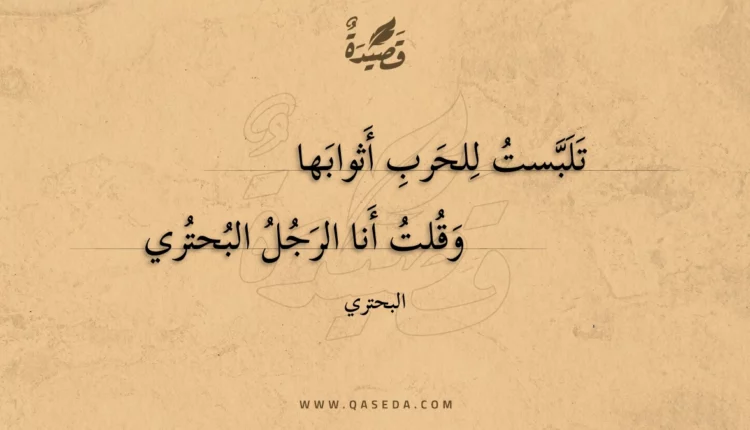 قَصِيدَةٌ
تَلَبَّستُ لِلحَربِ أَثوابَها
وَقُلتُ أَنا الرَجُلُ البُحتُري
البحتري
WWW.QASEDA.COM